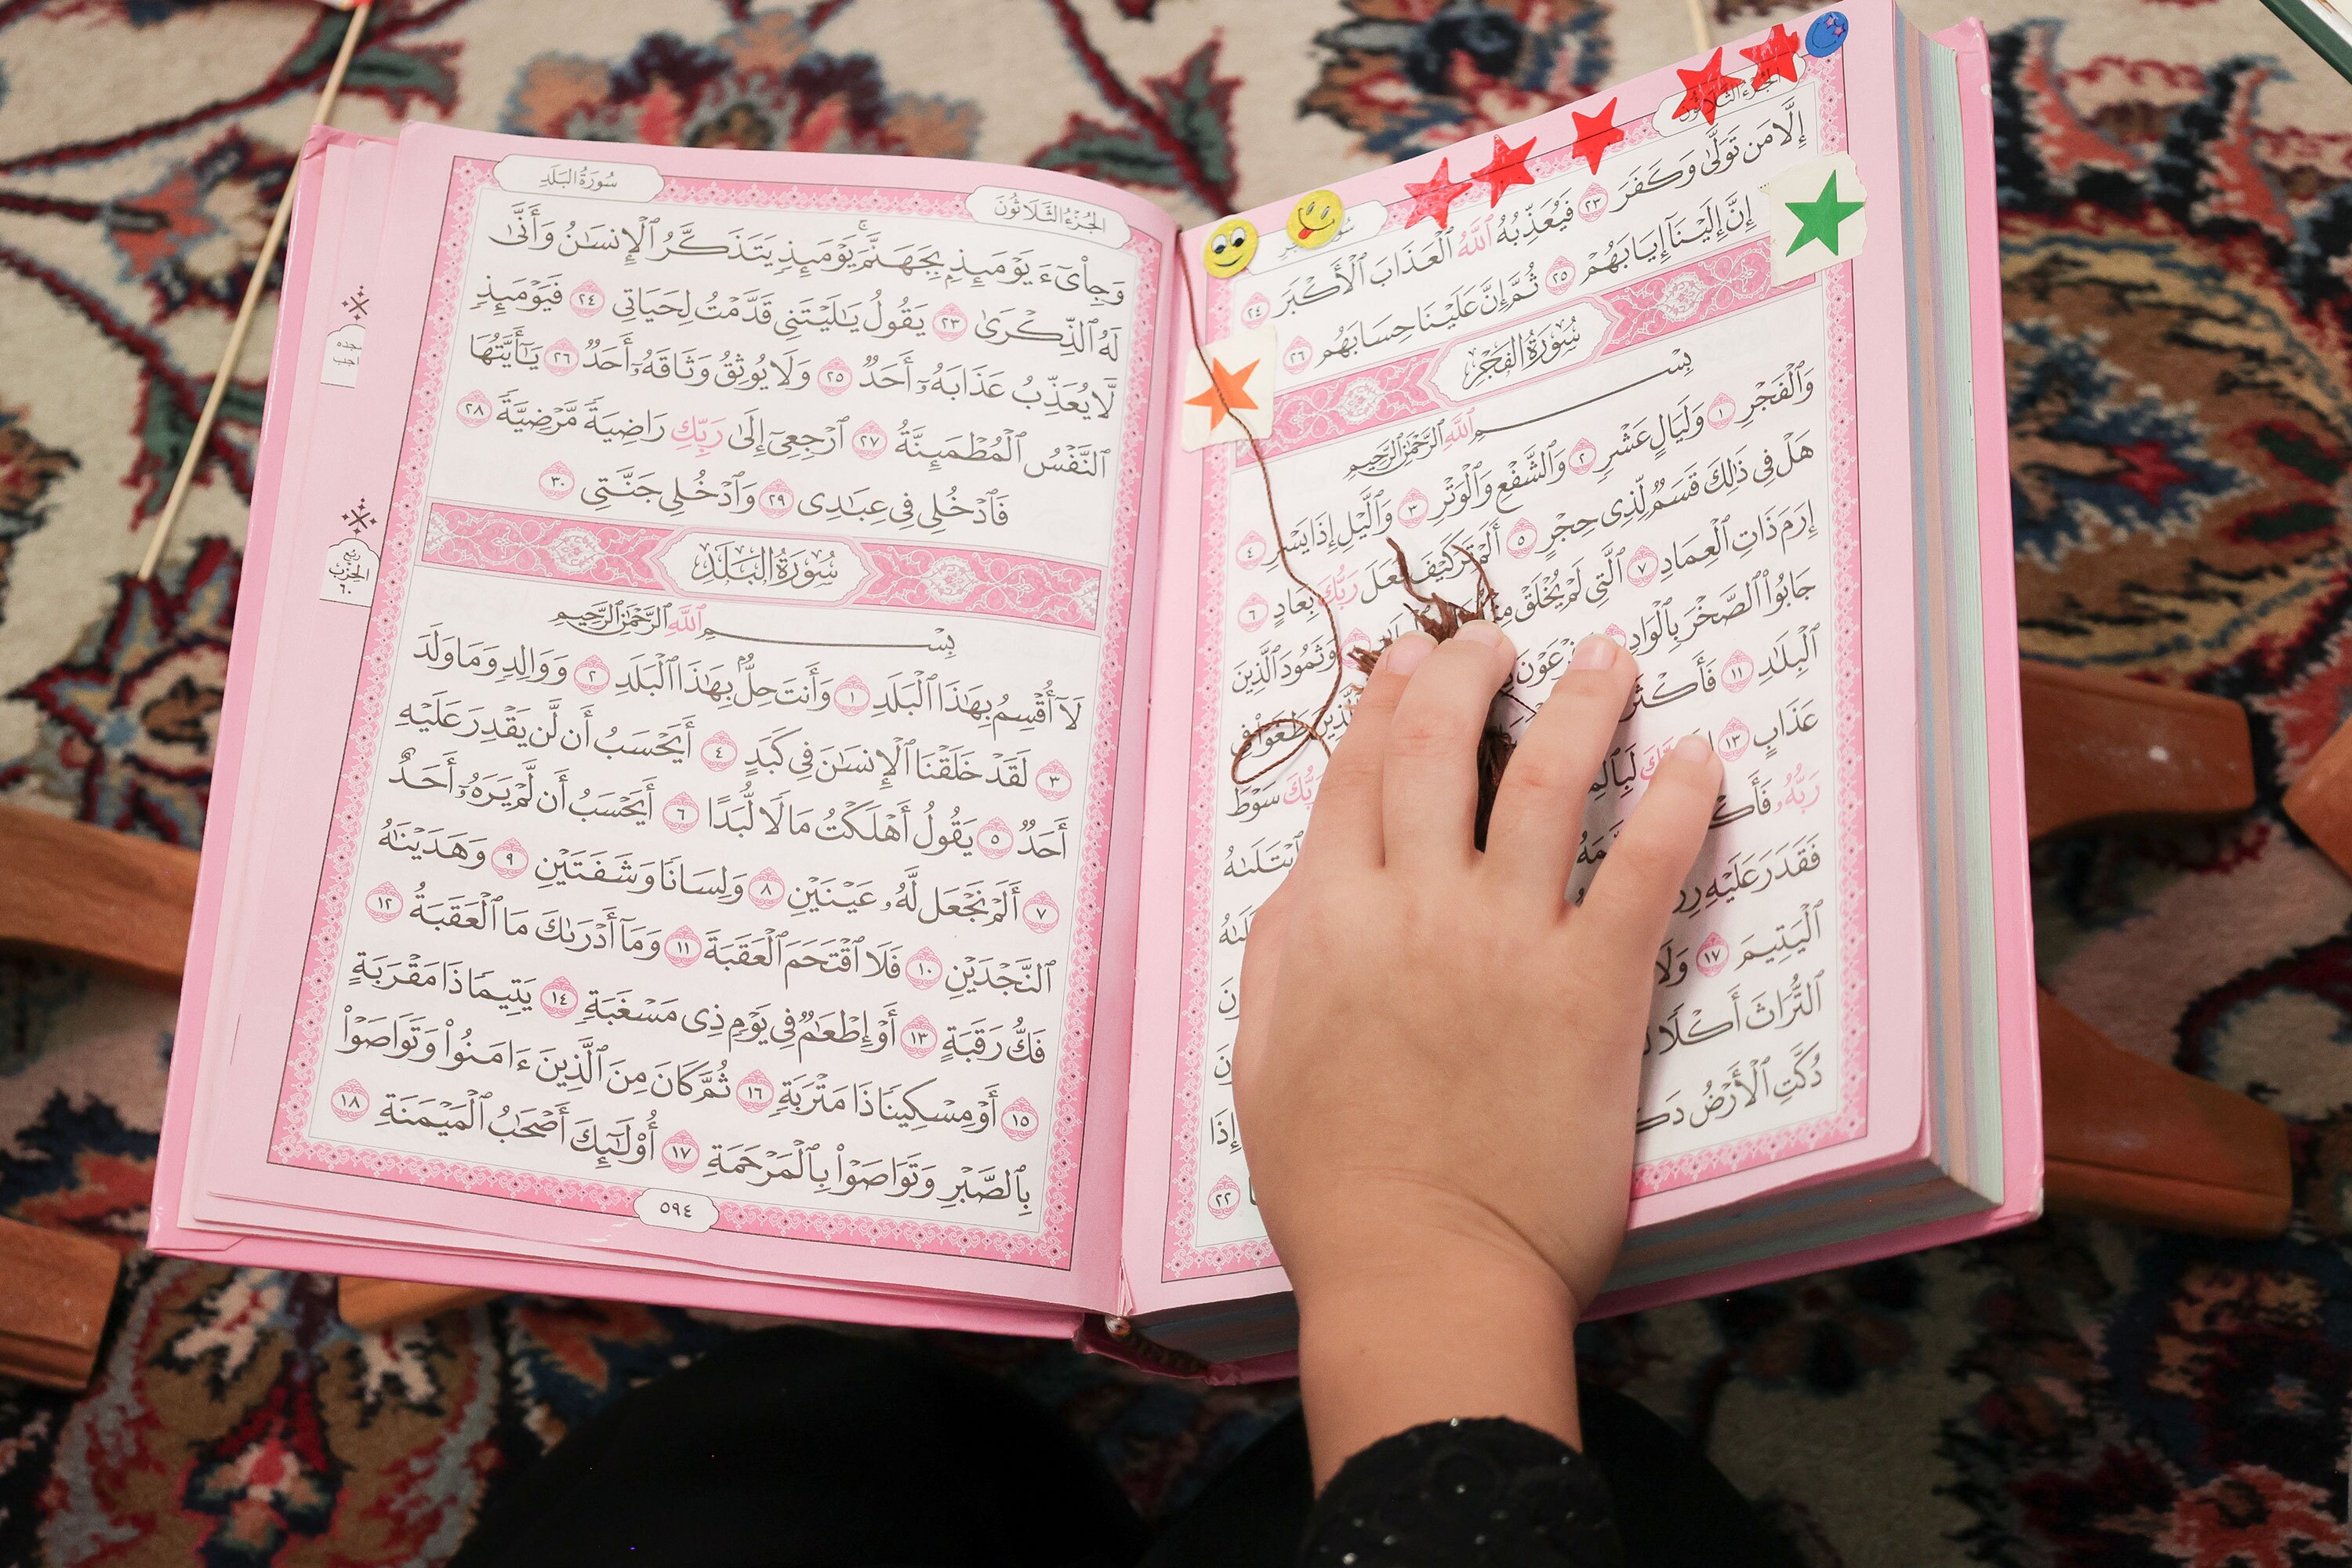 الجُزْءُ الثَّلَاثُونَ
إِلَّا مَن تَوَلَّىٰ وَكَفَرَ ٢٣ فَيُعَذِّبُهُ ٱللَّهُ ٱلْعَذَابَ ٱلْأَكْبَرَ ٢٤
إِنَّ إِلَيْنَآ إِيَابَهُمْ ٢٥ ثُمَّ إِنَّ عَلَيْنَا حِسَابَهُم ٢٦
سُورَةُ الفَجْرِ
بِسْمِ ٱللَّهِ ٱلرَّحْمَٰنِ ٱلرَّحِيمِ
وَٱلْفَجْرِ ١ وَلَيَالٍ عَشْرٍ ٢ وَٱلشَّفْعِ وَٱلْوَتْرِ ٣ وَٱلَّيْلِ إِذَا يَسْرِ ٤
هَلْ فِى ذَٰلِكَ قَسَمٌ لِّذِى حِجْرٍ ٥ أَلَمْ تَرَ كَيْفَ فَعَلَ رَبُّكَ بِعَادٍ ٦
إِرَمَ ذَاتِ ٱلْعِمَادِ ٧ ٱلَّتِى لَمْ يُخْلَقْ وَثَمُودَ ٱلَّذِينَ
جَابُوا۟ ٱلصَّخْرَ بِٱلْوَادِ طَغَوْا۟ فِى
ٱلْبِلَٰدِ ١١ سَوْطَ
عَذَابٍ ١٣ ٱبْتَلَىٰهُ
رَبُّهُۥ
فَقَدَرَ عَلَيْهِ
ٱلْيَتِيمَ ١٧
ٱلتُّرَاثَ أَكْلًا إِذَا
دُكَّتِ ٱلْأَرْضُ ٢٢
سُورَةُ البَلَدِ الجُزْءُ الثَّلَاثُونَ
وَجِا۟ىٓءَ يَوْمَئِذٍۭ بِجَهَنَّمَ ۚ يَوْمَئِذٍ يَتَذَكَّرُ ٱلْإِنسَٰنُ وَأَنَّىٰ
لَهُ ٱلذِّكْرَىٰ ٢٣ يَقُولُ يَٰلَيْتَنِى قَدَّمْتُ لِحَيَاتِى ٢٤ فَيَوْمَئِذٍ
لَّا يُعَذِّبُ عَذَابَهُۥٓ أَحَدٌ ٢٥ وَلَا يُوثِقُ وَثَاقَهُۥٓ أَحَدٌ ٢٦ يَٰٓأَيَّتُهَا
ٱلنَّفْسُ ٱلْمُطْمَئِنَّةُ ٢٧ ٱرْجِعِىٓ إِلَىٰ رَبِّكِ رَاضِيَةً مَّرْضِيَّةً ٢٨
فَٱدْخُلِى فِى عِبَٰدِى ٢٩ وَٱدْخُلِى جَنَّتِى ٣٠
سُورَةُ البَلَدِ
بِسْمِ ٱللَّهِ ٱلرَّحْمَٰنِ ٱلرَّحِيمِ
لَآ أُقْسِمُ بِهَٰذَا ٱلْبَلَدِ ١ وَأَنتَ حِلٌّۢ بِهَٰذَا ٱلْبَلَدِ ٢ وَوَالِدٍ وَمَا وَلَدَ
٣ لَقَدْ خَلَقْنَا ٱلْإِنسَٰنَ فِى كَبَدٍ ٤ أَيَحْسَبُ أَن لَّن يَقْدِرَ عَلَيْهِ
أَحَدٌ ٥ يَقُولُ أَهْلَكْتُ مَالًا لُّبَدًا ٦ أَيَحْسَبُ أَن لَّمْ يَرَهُۥٓ أَحَدٌ
٧ أَلَمْ نَجْعَل لَّهُۥ عَيْنَيْنِ ٨ وَلِسَانًا وَشَفَتَيْنِ ٩ وَهَدَيْنَٰهُ
ٱلنَّجْدَيْنِ ١٠ فَلَا ٱقْتَحَمَ ٱلْعَقَبَةَ ١١ وَمَآ أَدْرَىٰكَ مَا ٱلْعَقَبَةُ ١٢
فَكُّ رَقَبَةٍ ١٣ أَوْ إِطْعَٰمٌ فِى يَوْمٍ ذِى مَسْغَبَةٍ ١٤ يَتِيمًا ذَا مَقْرَبَةٍ
١٥ أَوْ مِسْكِينًا ذَا مَتْرَبَةٍ ١٦ ثُمَّ كَانَ مِنَ ٱلَّذِينَ ءَامَنُوا۟ وَتَوَاصَوْا۟
بِٱلصَّبْرِ وَتَوَاصَوْا۟ بِٱلْمَرْحَمَةِ ١٧ أُو۟لَٰٓئِكَ أَصْحَٰبُ ٱلْمَيْمَنَةِ ١٨
٥٩٤
رُبْعُ
الحِزْب
٦٠